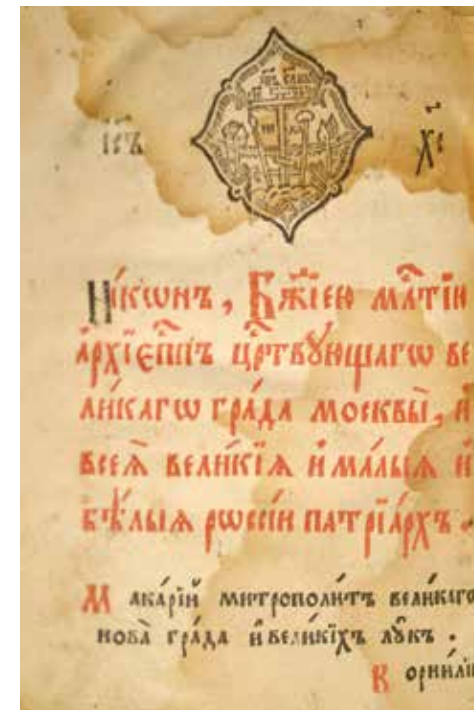 І҆с҃ъ Хс҃
Ні́кѡнъ, Бж҃їею млⷭ҇тїи
а҆рхїєпⷭ҇кпъ црⷭ҇твꙋющагѡ ве
ли́кагѡ гра́да москвы̀, и҆
всеѧ̀ вели́кїѧ и҆ ма́лыѧ и҆
бѣ́лыѧ рѡссі́и патрїа́рхъ.
Мака́рїй митрополи́тъ вели́кагѡ
нова̀ гра́да и҆ вели́кихъ лꙋ́къ.
Корни́лїи